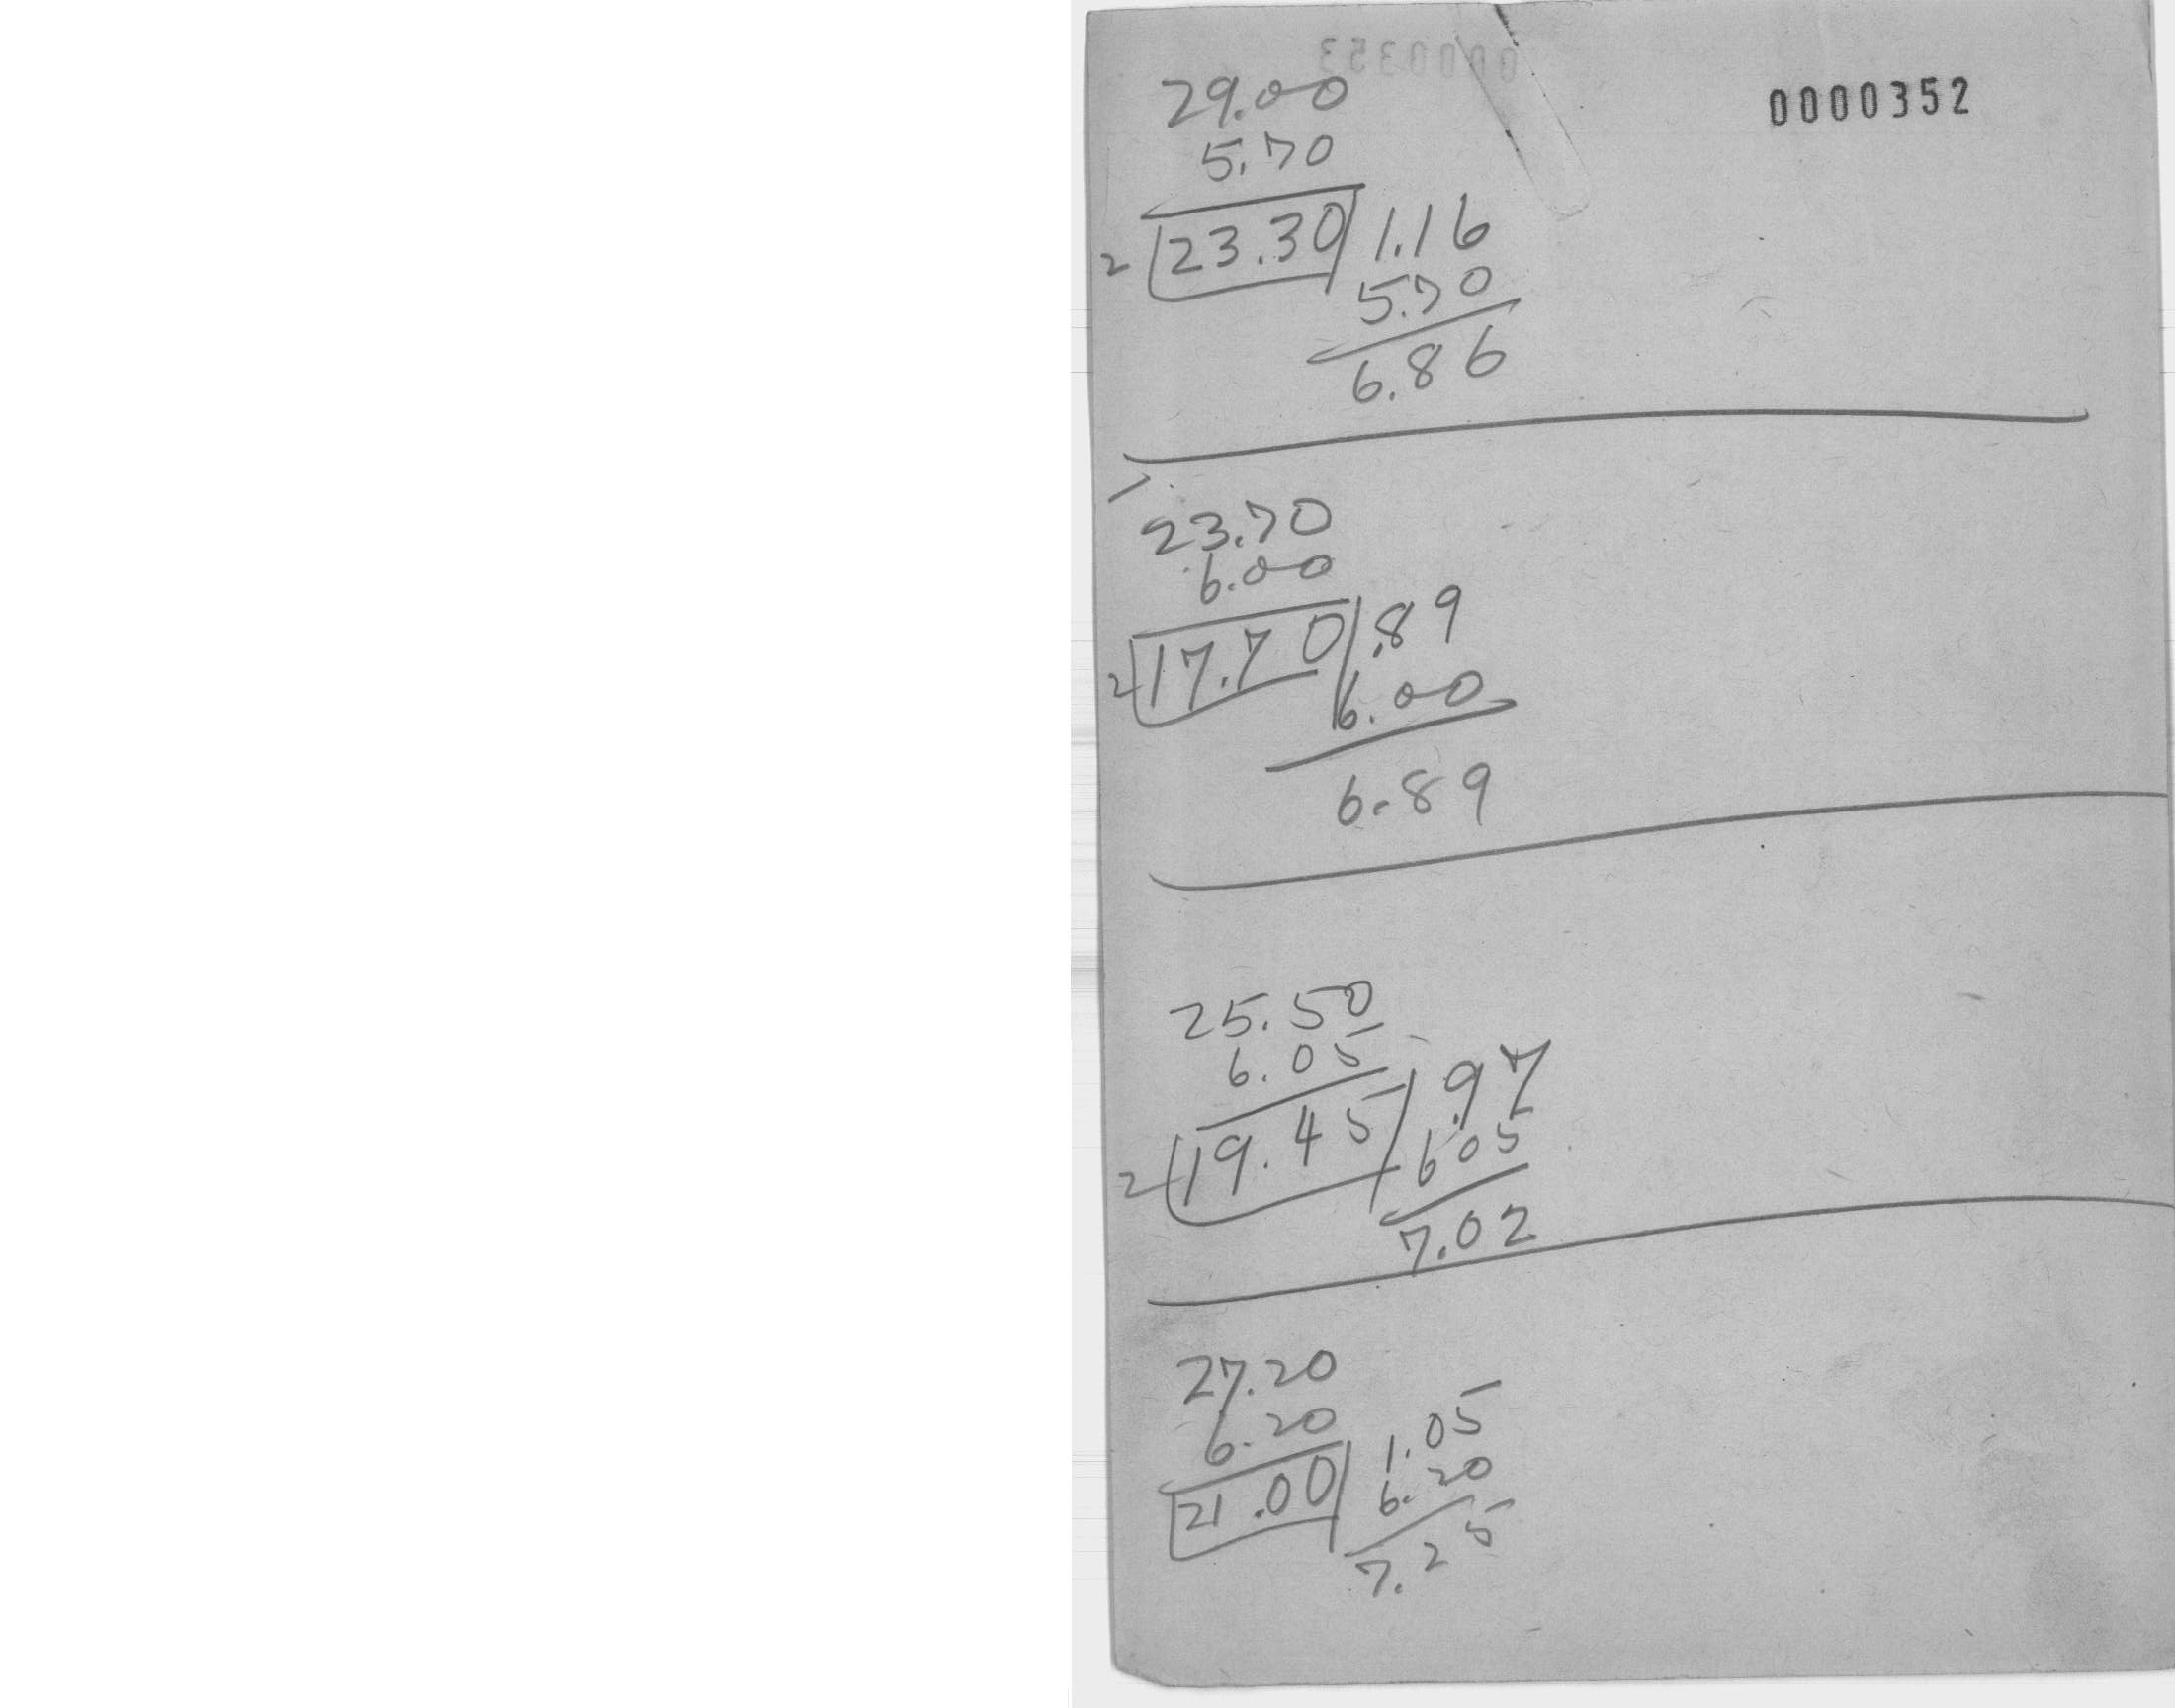 0000353
0000352
29.00
5.70
2 23.30 1.16
5.70
6.86
23.70
6.00
2 17.70 .89
6.00
6.89
25.50
6.05
2 19.45 .97
605
7.02
27.20
6.20
21.00 1.05
6.20
7.25